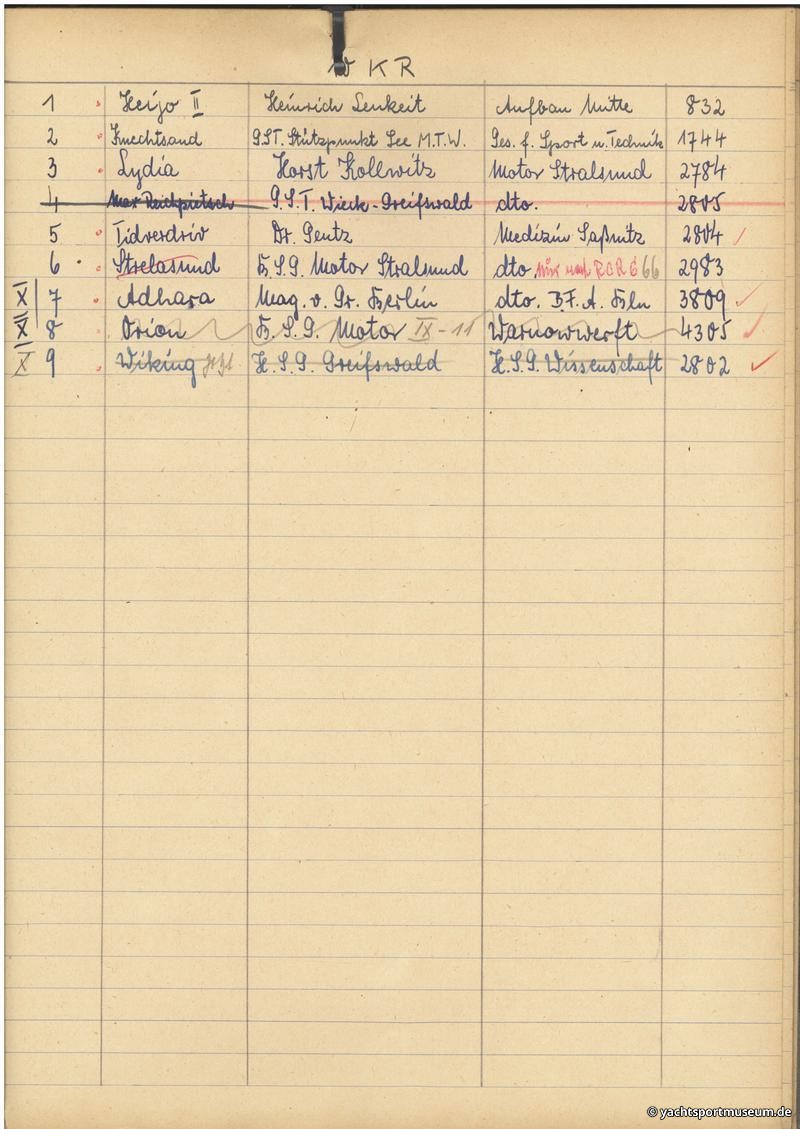 10 KR
1 Heijo II Heinrich Lenkeit Aufbau Mitte 832
2 Knechtsand G.S.T. Stützpunkt See M.T.W. Ges. f. Sport u. Technik 1744
3 Lydia Horst Kollwitz Motor Stralsund 2784
4 Max Reichpietsch G.S.T. Wieck-Greifswald dto. 2805
5 Tidverdriv Dr. Gentz Medizin Saßnitz 2804
6 Strelasund B.S.G. Motor Stralsund dto 66 2983
X 7 Adhara Mag. v. Gr. Berlin dto. B.F.A. Bln 3809
X 8 Orion B.S.G. Motor IX-11 Warnowwerft 4305
X 9 Wiking H.S.G. Greifswald H.S.G. Wissenschaft 2802
© yachtsportmuseum.de